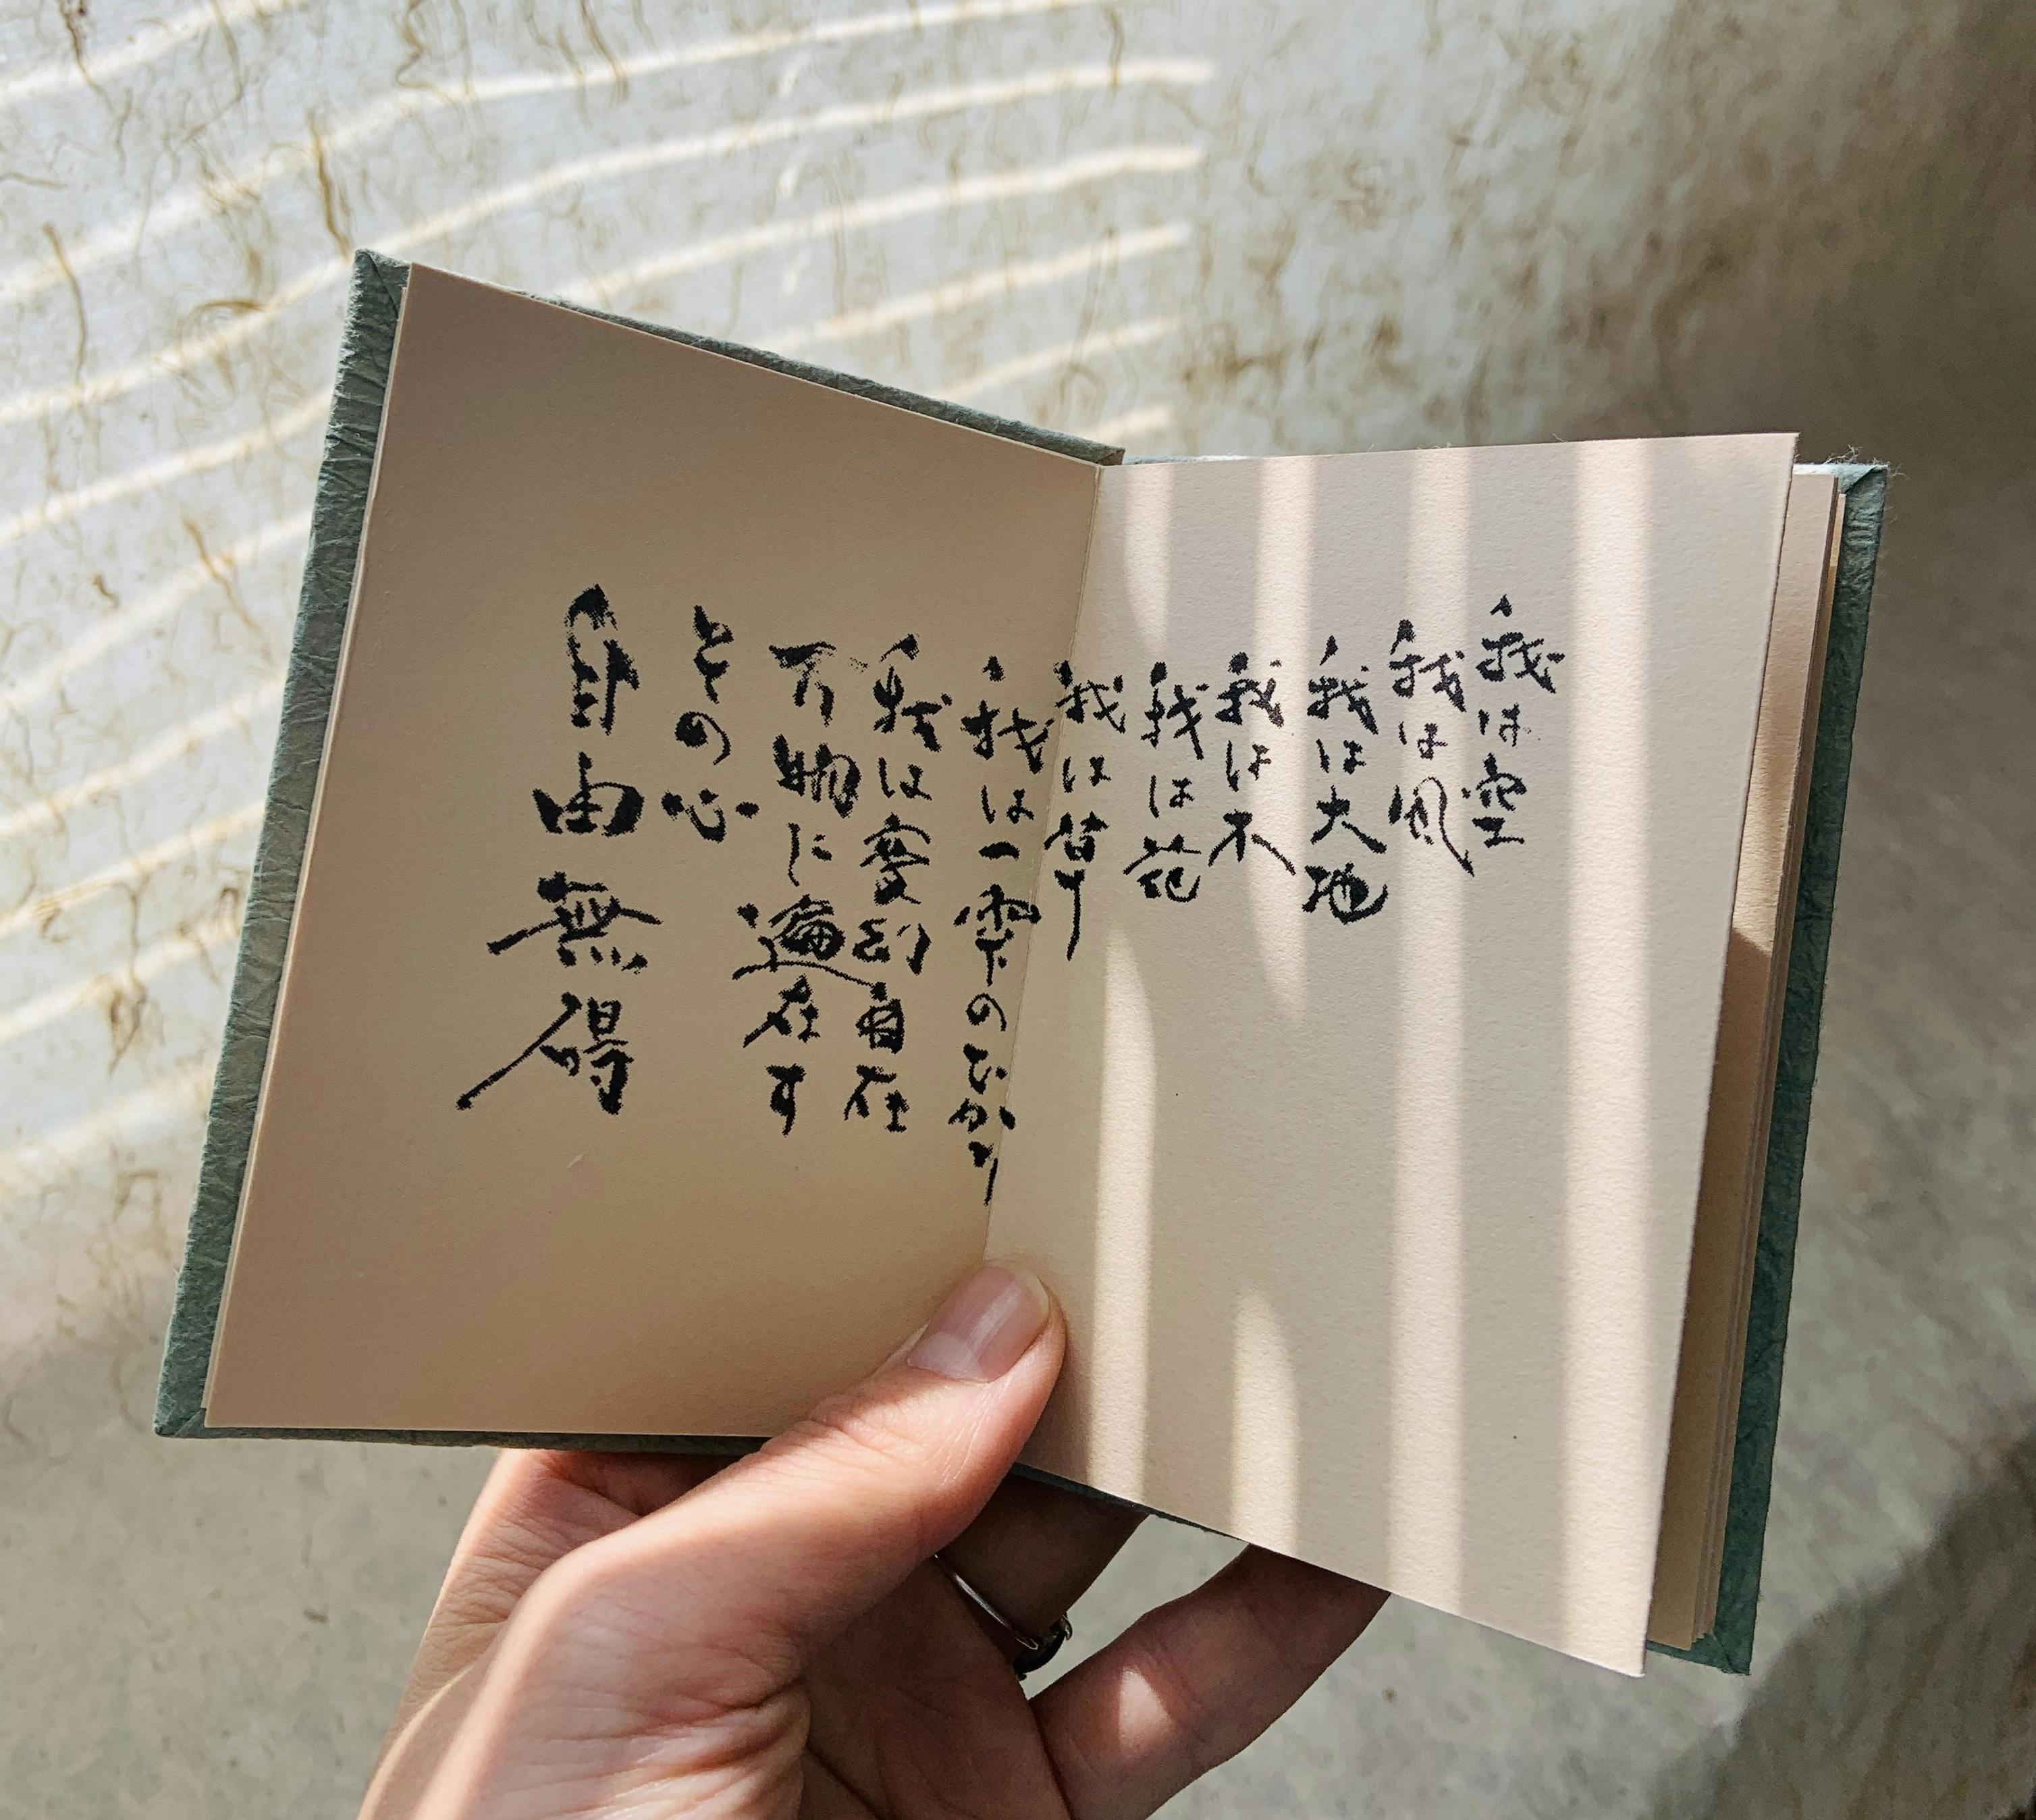 我は空
我は風
我は大地
我は木
我は花
我は草
我は一雫のひかり
我は変幻自在
万物に遍在す
その心
自由無碍